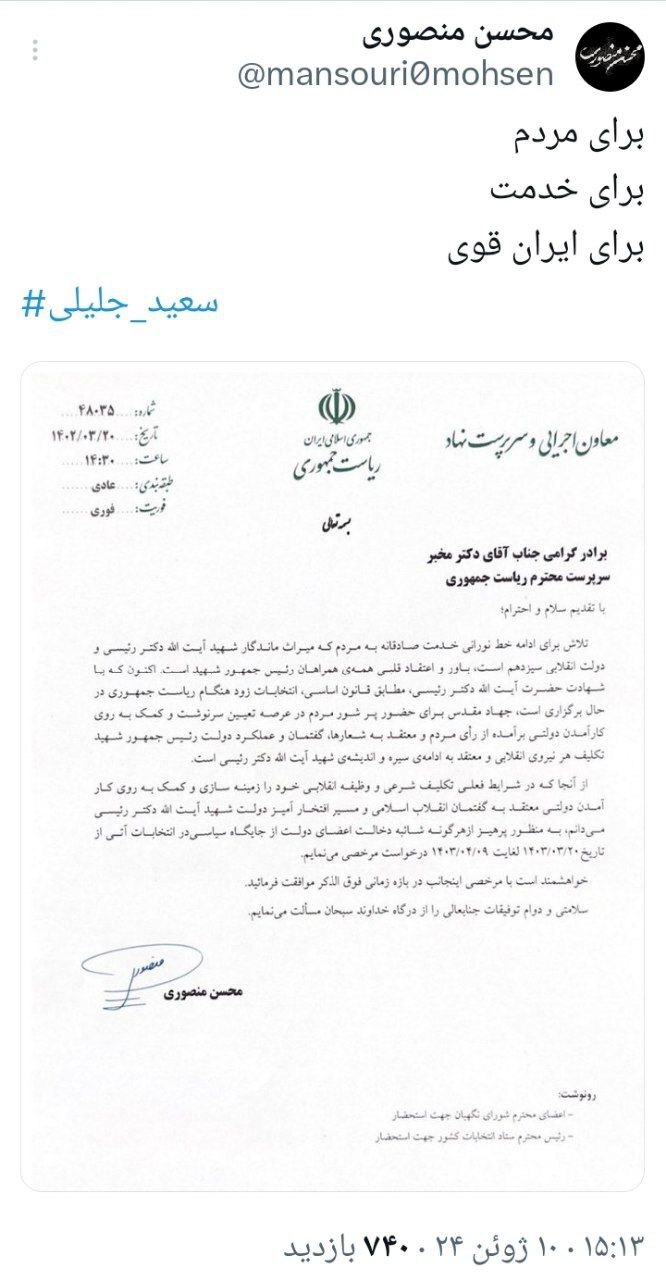 محسن منصوری
@mansouri0mohsen
برای مردم
برای خدمت
برای ایران قوی
#سعید_جلیلی
معاون اجرایی و سرپرست نهاد
جمهوری اسلامی ایران
ریاست جمهوری
شماره: ۴۸۰۳۵
تاریخ: ۱۴۰۲/۰۳/۲۰
ساعت: ۱۴:۳۰
طبقه‌بندی: عادی
فوریت: فوری
بسمه تعالی
برادر گرامی جناب آقای دکتر مخبر
سرپرست محترم ریاست جمهوری
با تقدیم سلام و احترام؛
تلاش برای ادامه خط نورانی خدمت صادقانه به مردم که میراث ماندگار شهید آیت الله دکتر رئیسی و
دولت انقلابی سیزدهم است، باور و اعتقاد قلبی همه‌ی همراهان رئیس جمهور شهید است. اکنون که با
شهادت حضرت آیت الله دکتر رئیسی، مطابق قانون اساسی، انتخابات زود هنگام ریاست جمهوری در
حال برگزاری است، جهاد مقدس برای حضور پر شور مردم در عرصه تعیین سرنوشت و کمک به روی
کارآمدن دولتی برآمده از رأی مردم و معتقد به شعارها، گفتمان و عملکرد دولت رئیس جمهور شهید
تکلیف هر نیروی انقلابی و معتقد به ادامه‌ی سیره و اندیشه‌ی شهید آیت الله دکتر رئیسی است.
از آنجا که در شرایط فعلی تکلیف شرعی و وظیفه انقلابی خود را زمینه سازی و کمک به روی کار
آمدن دولتی معتقد به گفتمان انقلاب اسلامی و مسیر افتخار آمیز دولت شهید آیت الله دکتر رئیسی
می‌دانم، به منظور پرهیز ازهرگونه شائبه دخالت اعضای دولت از جایگاه سیاسی‌در انتخابات آتی از
تاریخ ۱۴۰۳/۰۳/۲۰ لغایت ۱۴۰۳/۰۴/۰۹ درخواست مرخصی می‌نمایم.
خواهشمند است با مرخصی اینجانب در بازه زمانی فوق الذکر موافقت فرمائید.
سلامتی و دوام توفیقات جنابعالی را از درگاه خداوند سبحان مسألت می‌نمایم.
محسن منصوری
رونوشت:
- اعضای محترم شورای نگهبان جهت استحضار
- رئیس محترم ستاد انتخابات کشور جهت استحضار
۱۵:۱۳ · ۱۰ ژوئن ۲۴ · ۷۴۰ بازدید